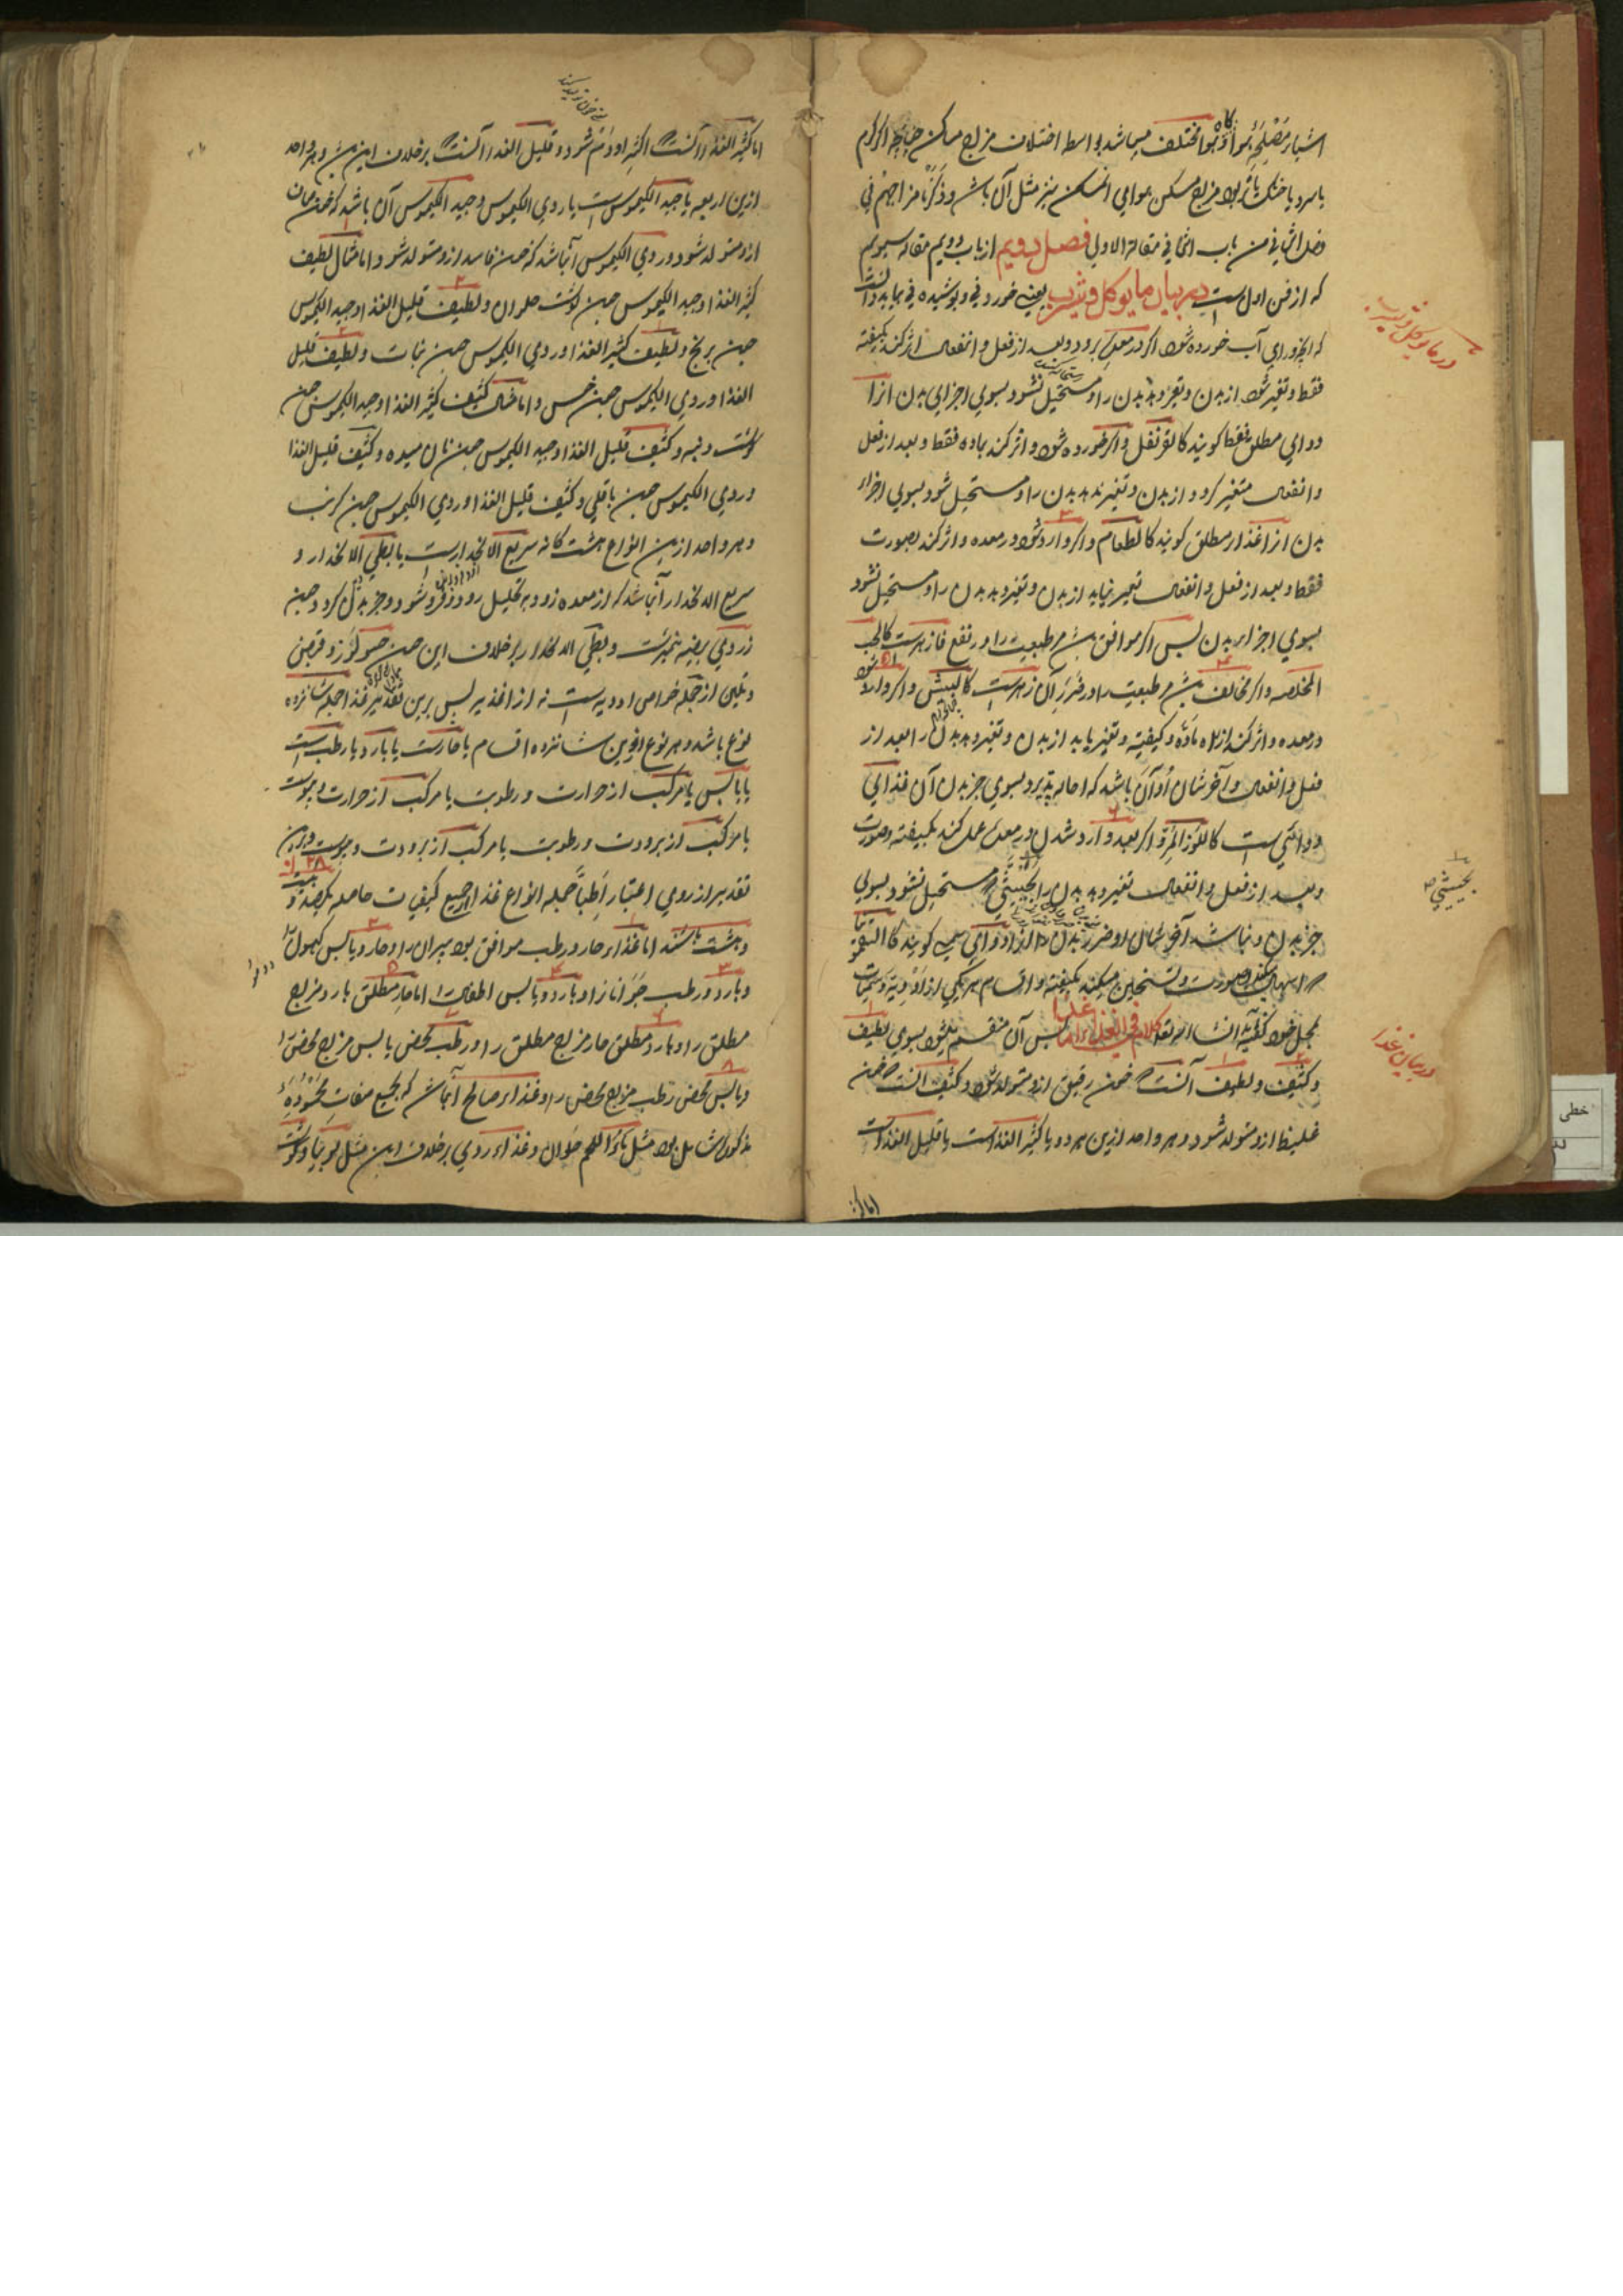 اشیاء مصلحه هوا و هوا مختلف میباشد بواسطه اختلاف مزاج مساکن چنانچه اگر گرم
یا سرد یا خشک یا تر بود مزاج مسکن هوای انمسکن نیز مثل آن باشد و ذکرنا مزاجهن فی
فصل الثانی من باب الثانی فی مقالة الاولی فصل دویم از باب دویم مقاله سیوم
که از فن اول است در بیان مایوکل و یشرب یعنی خوردنی و نوشیدنی بباید دانست
که انچه ورای آب خورده شود اگر در معده برود و بعد از فعل و انفعال اثر کند بکیفیته
فقط و تغیر شود از بدن و تغیر دهد بدن را و مستحیل نشود بسوی اجزای بدن انرا
دوای مطلق فقط گویند کالقرنفل و اگر خورده شود و اثر کند بماده فقط و بعد از فعل
و انفعال متغیر گردد از بدن و تغیر ندهد بدن را و مستحیل شود بسوی اجزاء
بدن انرا غذاء مطلق گویند کالطعام و اگر وارد شود در معده و اثر کند بصورت
فقط و بعد از فعل و انفعال تغیر نیابد از بدن و تغیر دهد بدن را و مستحیل نشود
بسوی اجزاء بدن پس اگر موافق باشد مر طبیعت را و نفع فازهرست کالحب
المخلصه و اگر مخالف باشد مر طبیعت را و ضرر آن زهرست کالبیش و اگر وارد شود
در معده و اثر کند از راه ماده و کیفیته و تغیر یابد از بدن و تغیر دهد بدن را بعد از
فعل و انفعال و آخر شان او آن باشد که احاله پذیرد بسوی جز بدن آن غذای
دوائی است کاللوز المر و اگر بعد وارد شدن در معده عمل کند بکیفیته و صورت
و بعد از فعل و انفعال تغیر دهد بدن را بحیثی که مستحیل نشود بسوی
جز بدن و نباشد آخر شان او ضرر بدن انرا دوای سمی گویند کالسقمونیا
که اسهال میکند بصورت و تسخین میکند بکیفیته و اقسام هر یکی از ادویة و سمیات
مجمل خواد گفته آید انشاء الله تعالی کلام فی الغذا اما غذا پس آن منقسم میشود بسوی لطیف
و کثیف و لطیف آنست که خون رقیق ازو متولد شود و کثیف انست که خون
غلیظ ازو متولد شود و هر واحد ازین هر دو یا کثیر الغذاست یا قلیل الغذاست
اما کثیر
در مایوکل و یشرب
بحیثیتی
در بیان غذا
اما کثیر الغذا آنست اکثر او دم شود و قلیل الغذا آنست برخلاف این باشد و هر واحد
ازین اربعه یا جید الکیموس است یا ردی الکیموس و جید الکیموس آن باشد که خون صاف
ازو متولد شود و ردی الکیموس آنباشد که خون فاسد ازو متولد شود و اما مثال لطیف
کثیر الغذا و جید الکیموس چون گوشت حلوان و لطیف قلیل الغذا و جید الکیموس
چون برنج و لطیف کثیر الغذا و ردی الکیموس چون نبات و لطیف قلیل
الغذا و ردی الکیموس چون خس و اما مثال کثیف کثیر الغذا و جید الکیموس چون
گوشت دنبه و کثیف قلیل الغذا و جید الکیموس چون نان میده و کثیف قلیل الغذا
و ردی الکیموس چون باقلی و کثیف قلیل الغذا و ردی الکیموس چون کرنب
و هر واحد ازین انواع هشت گانه سریع الانحدارست یا بطی الانحدار و
سریع الانحدار آنباشد که از معده زود به تحلیل رود و زود فروشود و جز بدن گردد چون
زردی بیضه نیمبرشت و بطی الانحدار برخلاف این چون جوز و قریص
و تلین از جمله خواص ادویه است نه از اغذیه پس برین تقدیر غذا جمله شانزده
نوع باشد و هر نوع ازین شانزده اقسام یا حارست یا بارد یا رطب است
یا یابس یا مرکب از حرارت و رطوبت یا مرکب از حرارت و یبوست
یا مرکب از برودت و رطوبت یا مرکب از برودت و یبوست و برین
تقدیر از روی اعتبار اطبا جمله انواع غذا از جمیع کیفیات حاصله یکصد و بیست
و هشت باشند اما غذاء حار و رطب موافق بود پیران را و حار و یابس کهول را
و بارد و رطب جوانان را و بارد و یابس اطفال را اما حار مطلق بارد مزاج
مطلق را و بارد مطلق حار مزاج مطلق را و رطب محض یابس مزاج محض را
و یابس محض رطب مزاج محض را و غذاء صالح آنباشد که بجمیع صفات محموده
مذکوره شامل بود مثل ماء اللحم حلوان و غذاء ردی برخلاف این مثل لوبیا و گوشت